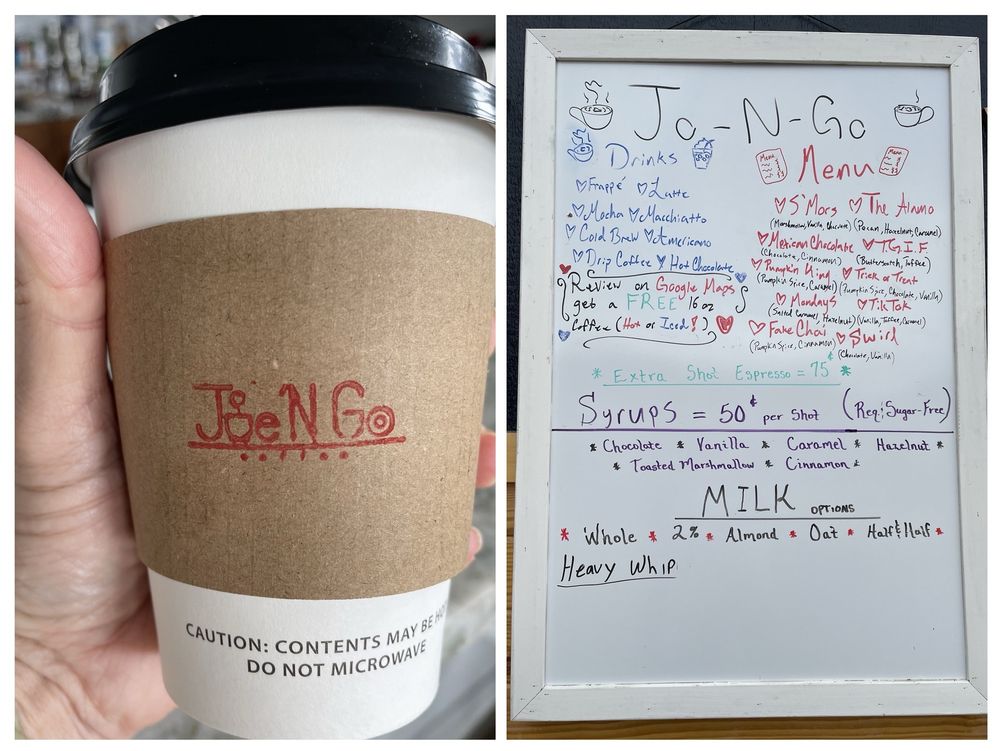 Joe N Go
coffee
CAUTION: CONTENTS MAY BE HO
DO NOT MICROWAVE
Jo-N-Go
Drinks
Frappé Latte
Mocha Macchiatto
Cold Brew Americano
Drip Coffee Hot Chocolate
Review on Google Maps
get a FREE 16 oz
Coffee (Hot or Iced!)
Menu
Menu
Menu
S'Mors The Alamo
(Marshmallow, Vanilla, Chocolate) (Pecan, Hazelnut, Caramel)
Mexican Chocolate T.G.I.F.
(Chocolate, Cinnamon) (Butterscotch, Toffee)
Pumpkin King Trick or Treat
(Pumpkin Spice, Caramel) (Pumpkin Spice, Chocolate, Vanilla)
Mondays TikTok
(Salted Caramel, Hazelnut) (Vanilla, Toffee, Caramel)
Fake Chai Swirl
(Pumpkin Spice, Cinnamon) (Chocolate, Vanilla)
* Extra Shot Espresso = 75¢ *
Syrups = 50¢ per shot (Reg; Sugar-Free)
* Chocolate * Vanilla * Caramel * Hazelnut *
* Toasted Marshmallow * Cinnamon *
MILK OPTIONS
* Whole * 2% * Almond * Oat * Half & Half *
Heavy Whip